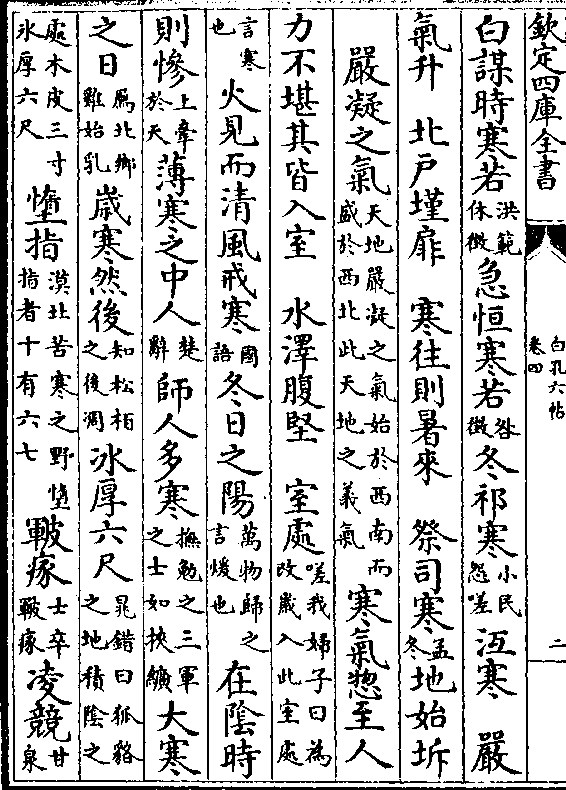 欽定四庫全書
白孔六帖
卷四
二
白謀時寒若洪範休徴急恒寒若咎徴冬祁寒小民怨嗟沍寒 嚴
氣升 北戸墐扉 寒往則暑來 祭司寒孟冬地始坼
嚴凝之氣天地嚴凝之氣始於西南而盛於西北此天地之義氣寒氣惣至人
力不堪其皆入室 水澤腹堅 室處嗟我婦子曰為改歲入此室處
言寒也火見而清風戒寒國語冬日之陽萬物歸之言煖也在陰時
則慘上牽於天薄寒之中人楚辭師人多寒撫勉之三軍之士如挾纊大寒
之日雁北鄉雖始乳歲寒然後知松柏之後凋冰厚六尺晁錯曰狐貉之地積陰之
處木皮三寸氷厚六尺墮指漠北苦寒之野墮指者十有六七 皸瘃士卒皸瘃凌兢甘泉